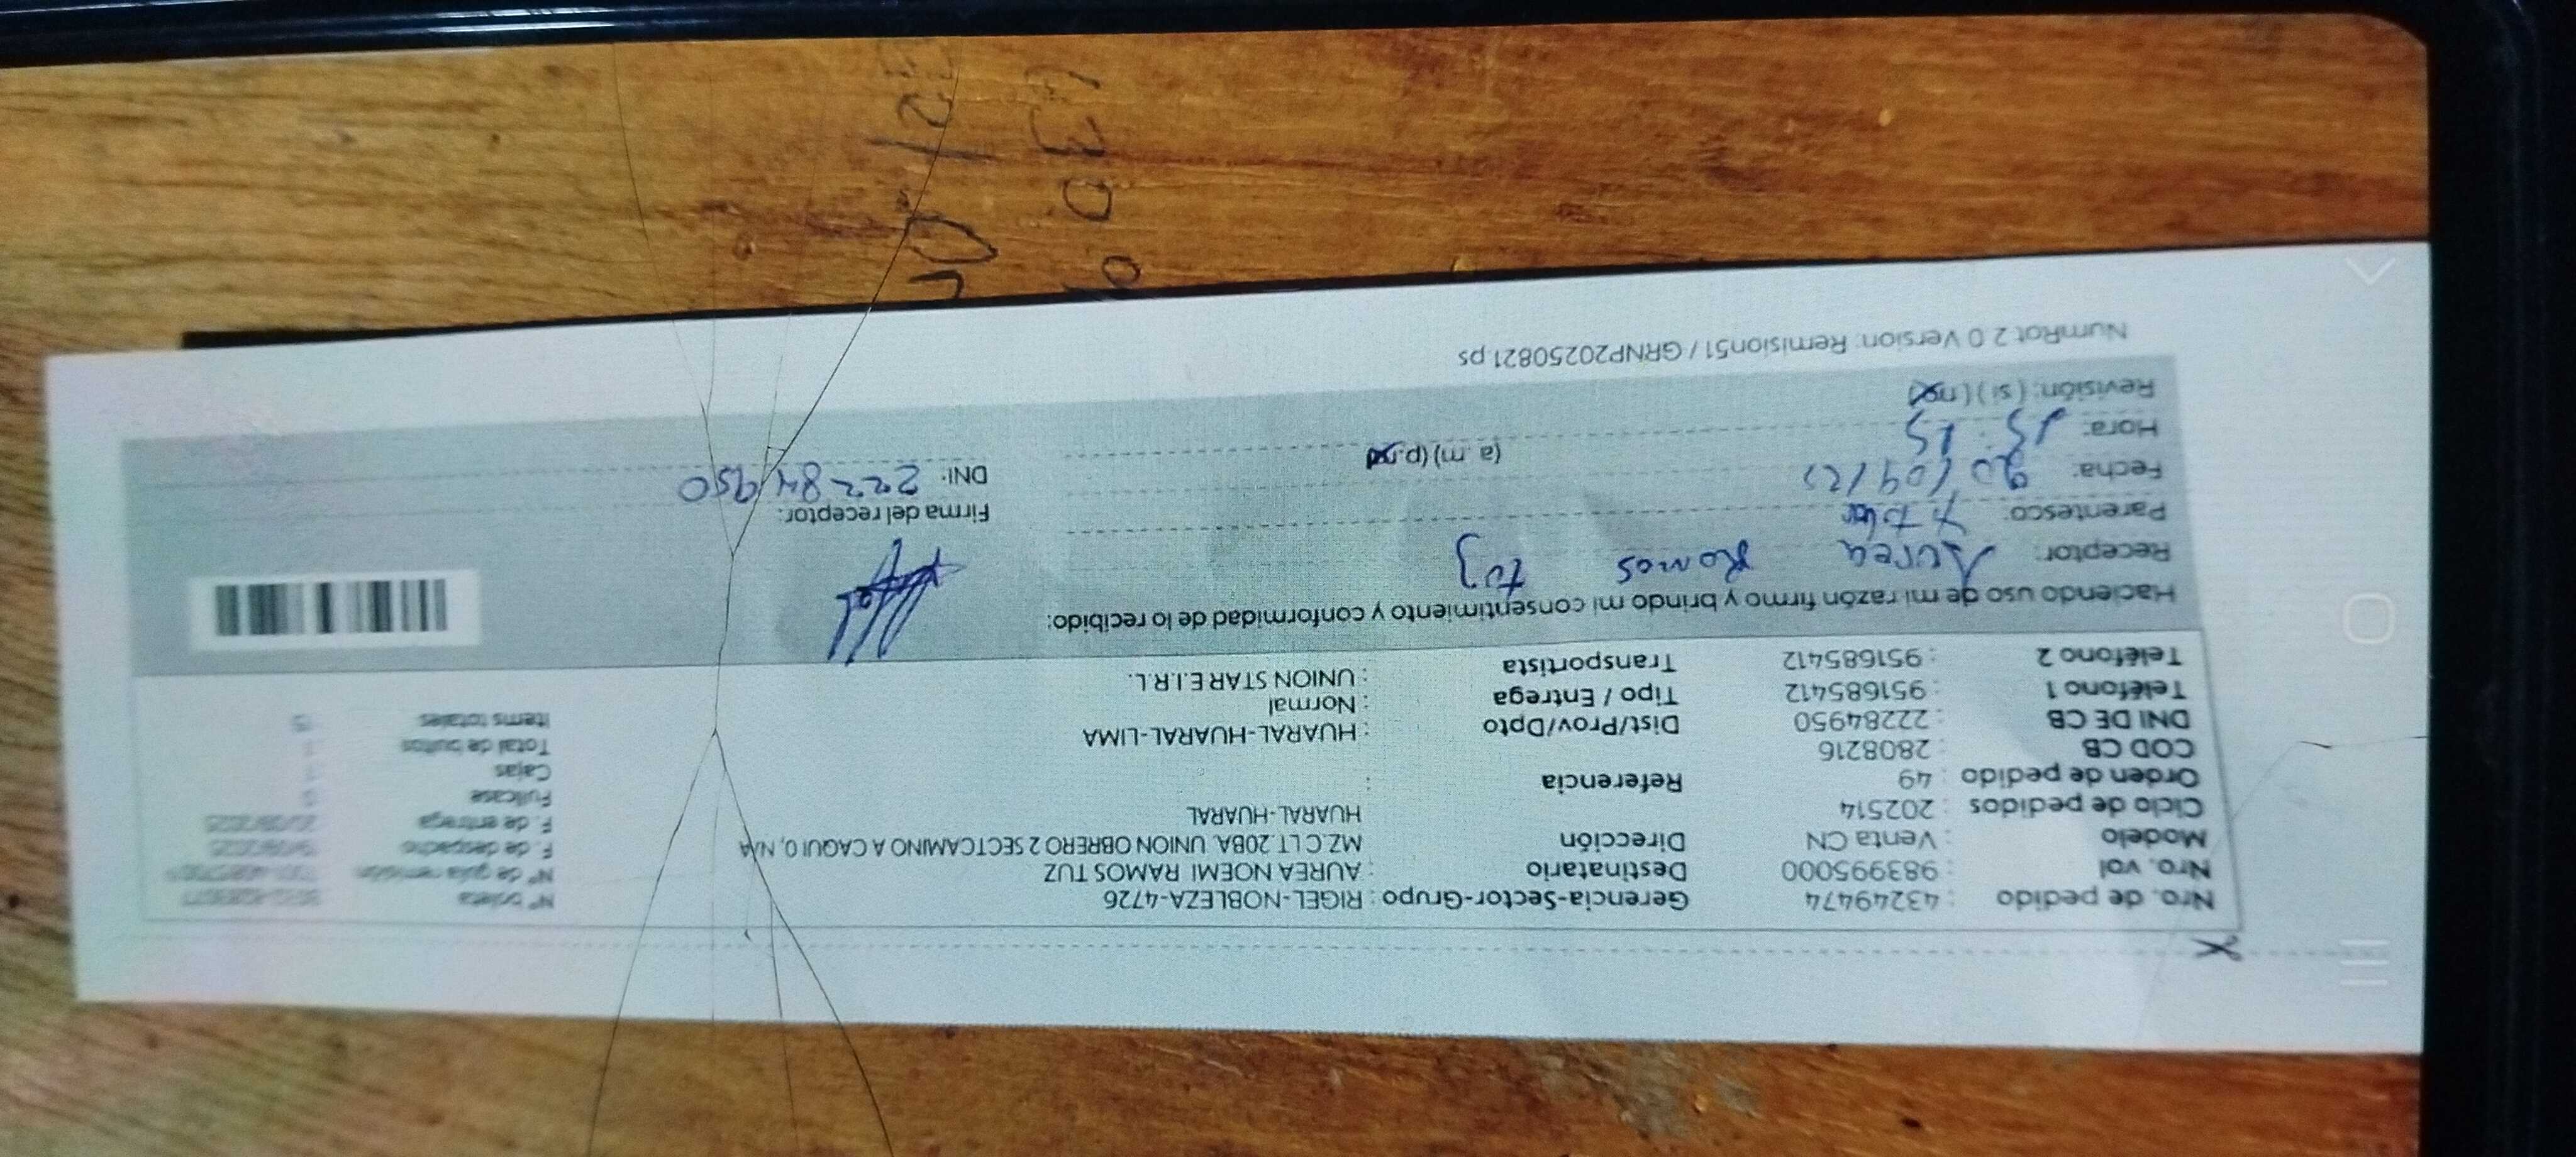 Nro. de pedido : 43249474 Gerencia-Sector-Grupo : RIGEL-NOBLEZA-4726 N° boleta
Nro. vol : 983995000 Destinatario : AUREA NOEMI RAMOS TUZ N° de guía remisión
Modelo : Venta CN Dirección MZ.C LT.20BA. UNION OBRERO 2 SECTCAMINO A CAQUI 0, N/A F. de despacho
Ciclo de pedidos : 202514 HUARAL-HUARAL F. de entrega
Orden de pedido : 49 Referencia : Fullcase
COD CB : 2808216 Cajas
DNI DE CB : 22284950 Dist/Prov/Dpto : HUARAL-HUARAL-LIMA Total de bultos
Teléfono 1 : 951685412 Tipo / Entrega : Normal Items totales
Teléfono 2 : 951685412 Transportista : UNION STAR E.I.R.L.
Haciendo uso de mi razón firmo y brindo mi consentimiento y conformidad de lo recibido:
Receptor: Aurea Ramos tuz
Parentesco: Firma del receptor:
Fecha: DNI: 22284950
Hora: (a. m) (p.m)
Revisión: (si) (no)
NumRot 2.0 Version: Remision51 / GRNP20250821.ps